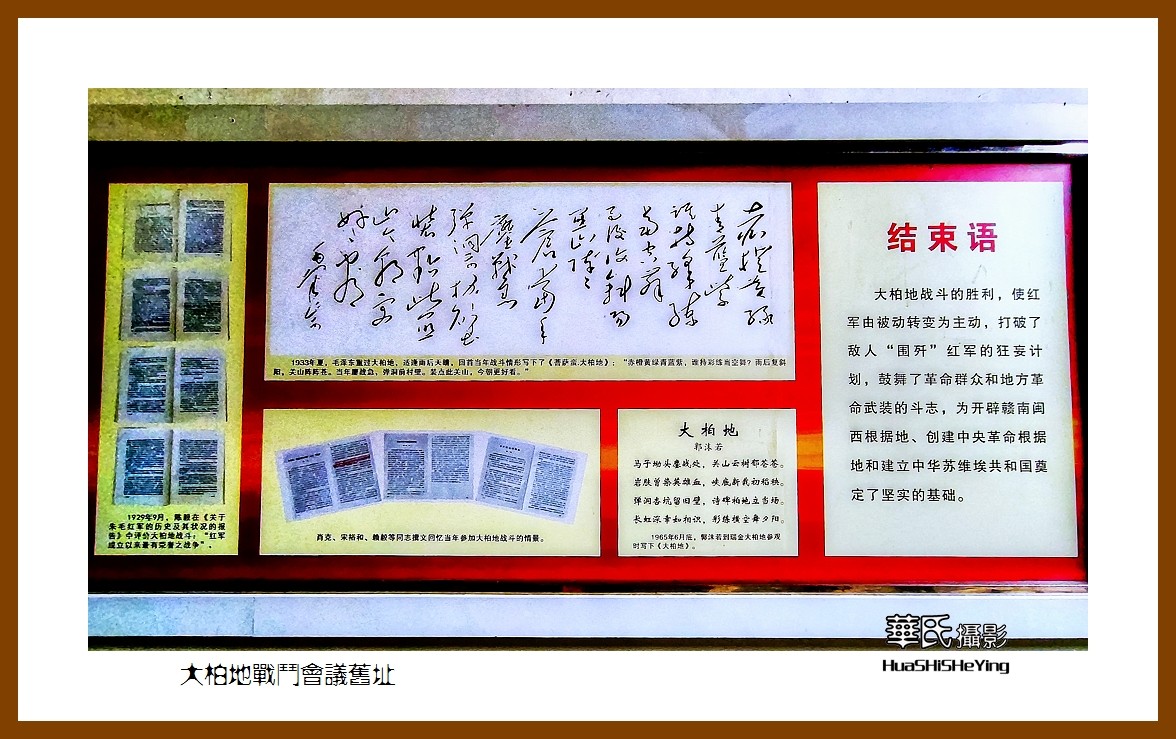 1929年9月，陈毅在《关于
朱毛红军的历史及其状况的报
告》中评价大柏地战斗：“红军
成立以来最有荣誉之战争”。
赤橙黄绿
青蓝紫
谁持彩练
当空舞
雨后复斜阳
关山阵阵
苍
当年
鏖战急
弹洞前村壁
装点此关
山今朝更
好看
1933年夏，毛泽东重过大柏地，适逢雨后天晴，回首当年战斗情形写下了《菩萨蛮.大柏地》：“赤橙黄绿青蓝紫，谁持彩练当空舞？雨后复斜
阳，关山阵阵苍。当年鏖战急，弹洞前村壁。装点此关山，今朝更好看。”
肖克、宋裕和、赖毅等同志撰文回忆当年参加大柏地战斗的情景。
大柏地
郭沫若
马子坳头鏖战处，关山云树郁苍苍。
岩肤曾染英雄血，峡底新栽初稻秧。
弹洞杏坑留旧壁，诗碑柏地立当场。
长虹深幸如相识，彩练横空舞夕阳。
1965年6月底，郭沫若到瑞金大柏地参观
时写下《大柏地》。
结束语
大柏地战斗的胜利，使红
军由被动转变为主动，打破了
敌人“围歼”红军的狂妄计
划，鼓舞了革命群众和地方革
命武装的斗志，为开辟赣南闽
西根据地、创建中央革命根据
地和建立中华苏维埃共和国奠
定了坚实的基础。
華氏攝影
HuaSHiSHeYing
大柏地戰鬥會議舊址